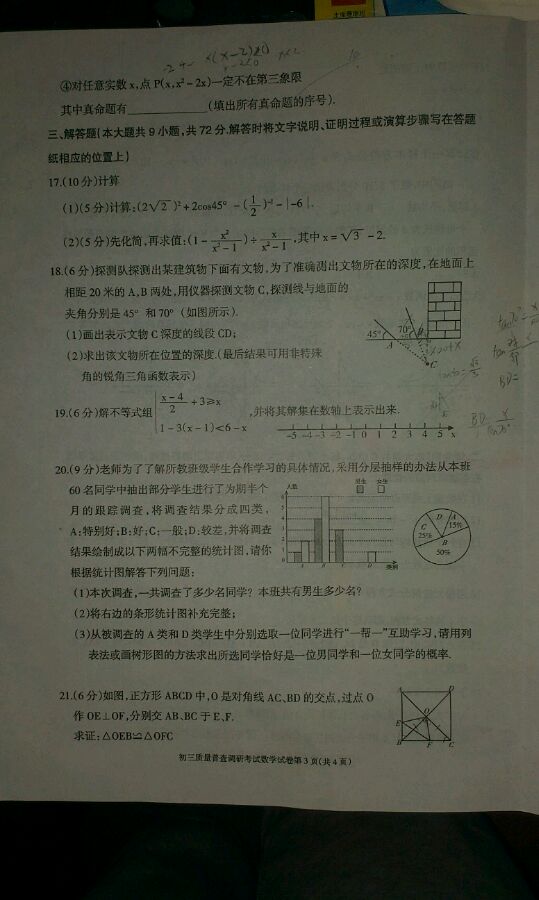 ④对任意实数 x,点 P(x,x²－2x)一定不在第三象限
其中真命题有____________(填出所有真命题的序号).
三、解答题(本大题共 9 小题,共 72 分.解答时将文字说明、证明过程或演算步骤写在答题
纸相应的位置上)
17.(10 分)计算
(1)(5 分)计算:(2√2)²+2cos45° －(1/2)⁻¹－|－6|.
(2)(5 分)先化简,再求值:(1－x²/(x²－1))÷x/(x²－1),其中 x=√3－2.
18.(6 分)探测队探测出某建筑物下面有文物,为了准确测出文物所在的深度,在地面上
相距 20 米的 A,B 两处,用仪器探测文物 C,探测线与地面的
夹角分别是 45° 和 70°(如图所示).
(1)画出表示文物 C 深度的线段 CD;
(2)求出该文物所在位置的深度.(最后结果可用非特殊
角的锐角三角函数表示)
45° 70°
A B
C
19.(6 分)解不等式组 (x－4)/2+3≥x ,并将其解集在数轴上表示出来.
1－3(x－1)<6－x
-5 -4 -3 -2 -1 0 1 2 3 4 5 x
20.(9 分)老师为了了解所教班级学生合作学习的具体情况,采用分层抽样的办法从本班
60 名同学中抽出部分学生进行了为期半个
月的跟踪调查,将调查结果分成四类,
A:特别好;B:好;C:一般;D:较差,并将调查
结果绘制成以下两幅不完整的统计图,请你
根据统计图解答下列问题:
人数 男生 女生
A B C D 类别
D A 15%
C 25%
B 50%
(1)本次调查,一共调查了多少名同学? 本班共有男生多少名?
(2)将右边的条形统计图补充完整;
(3)从被调查的 A 类和 D 类学生中分别选取一位同学进行“一帮一”互助学习,请用列
表法或画树形图的方法求出所选同学恰好是一位男同学和一位女同学的概率.
21.(6 分)如图,正方形 ABCD 中,O 是对角线 AC、BD 的交点,过点 O
作 OE⊥OF,分别交 AB、BC 于 E、F.
求证:△OEB≌△OFC
A D
O
E
B F C
初三质量普查调研考试数学试卷第 3 页(共 4 页)